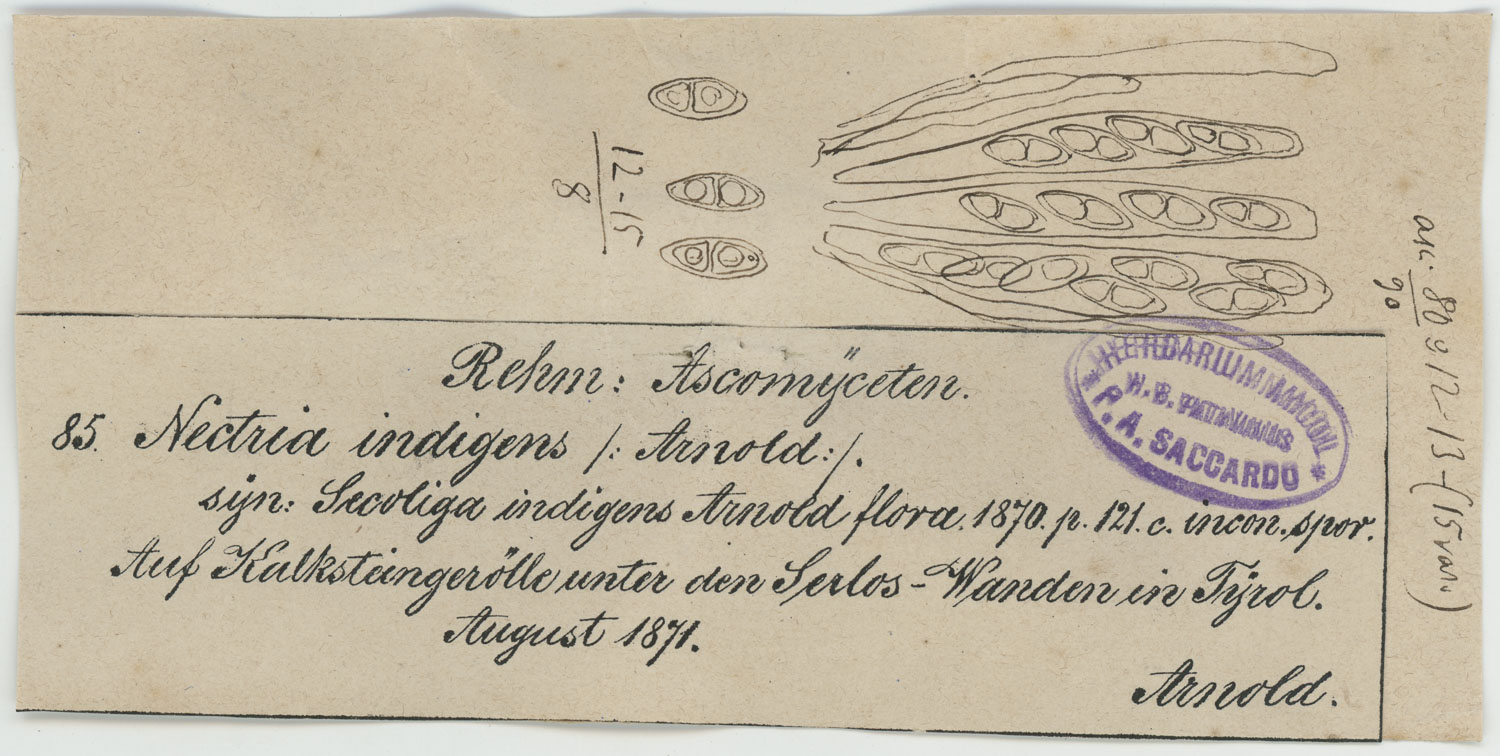 12-15
8
Rehm: Ascomÿceten.
85. Nectria indigens /: Arnold:/.
sÿn: Secoliga indigens Arnold flora. 1870. p. 121. c. incon. spor.
Auf Kalksteingerölle unter den Serlos-Wanden in Tÿrol.
August 1871.
Arnold.
HERBARIUM MYCOL.
P. A. SACCARDO
asc. 80
90
12-13-(15